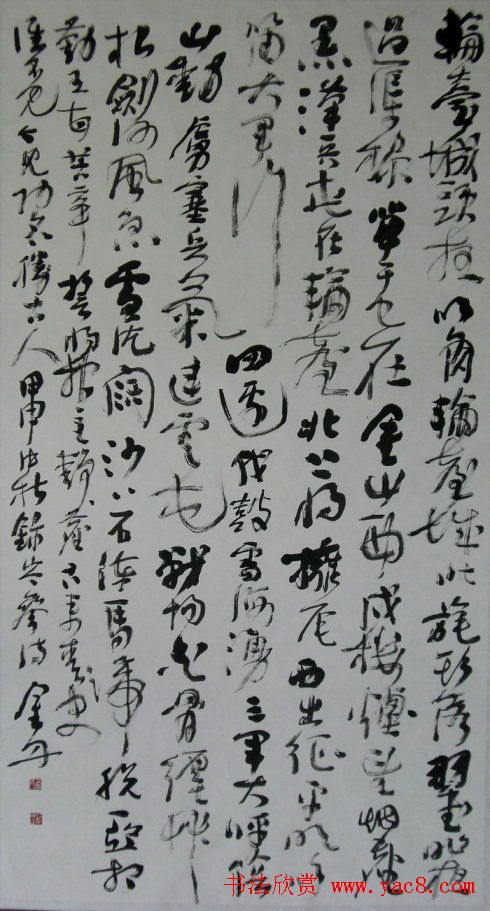 輪臺城頭夜吹角輪臺城北旄頭落羽書昨夜
過渠黎單于已在金山西戍樓望烟塵
黑漢兵屯在輪臺北上將擁旄西出征平明吹
笛大軍行四邊伐鼓雪海湧三軍大呼陰
山動虜塞兵氣連雲屯戰場白骨纏草
根劍河風急雪片闊沙口石凍馬蹄脫亞相
勤王甘苦辛誓將報主靜邊塵古來青史
誰不見今見功名勝古人甲申中秋錄岑參詩金丹
书法欣赏 www.yac8.com